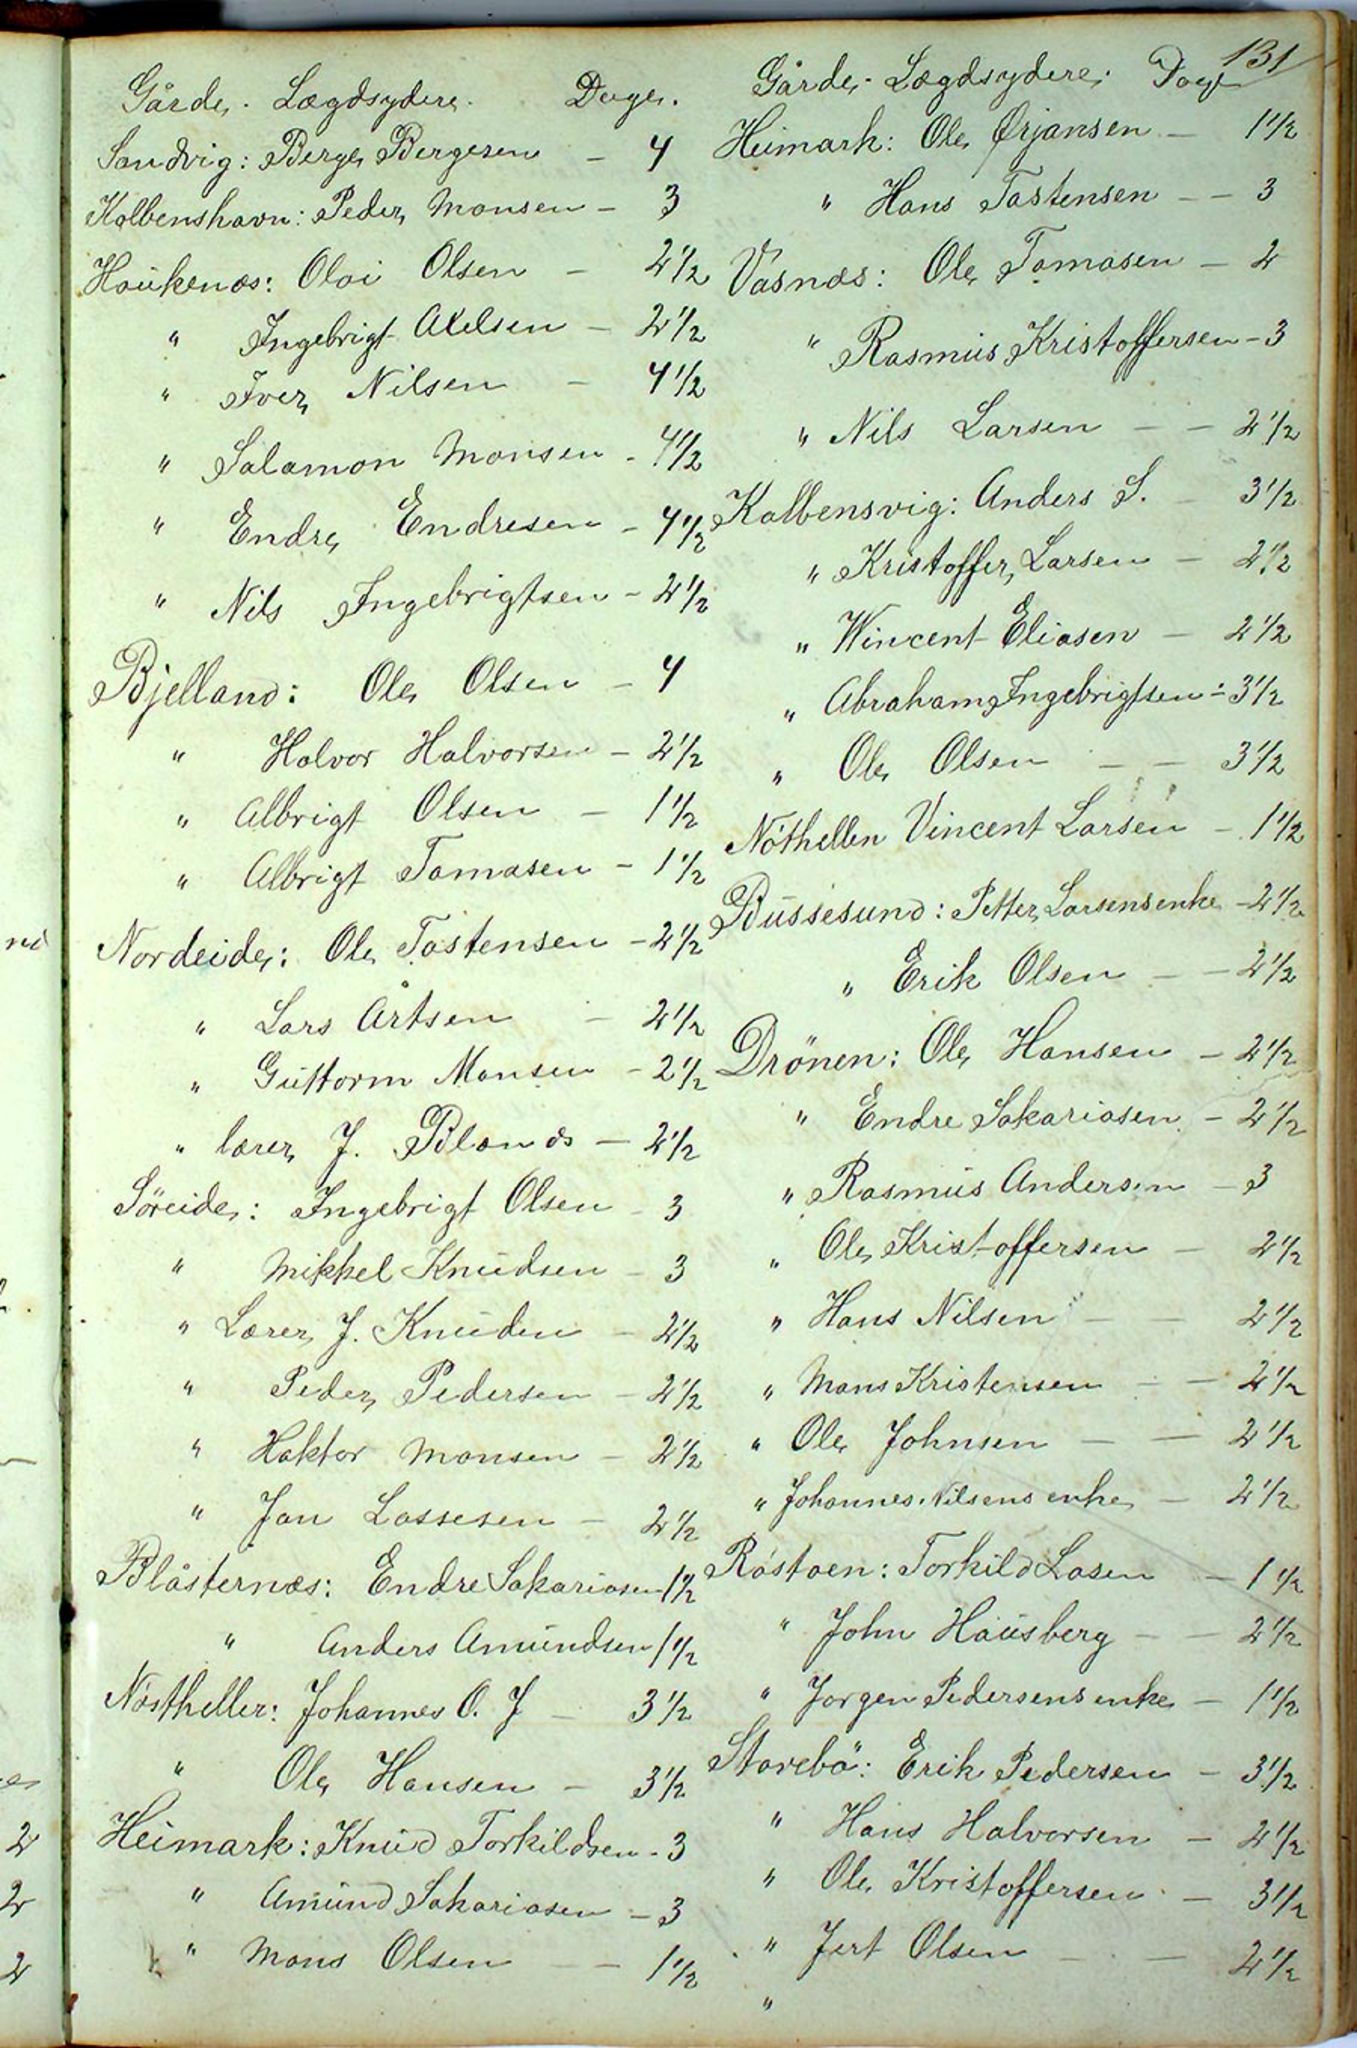 131
Gårde. Lægdsydere. Dage.
Sandvig: Berge Bergesen — 4
Kolbenshavn: Peder Monsen — 3
Haukenæs: Olai Olsen — 2 1/2
" Ingebrigt Axelsen — 2 1/2
" Iver Nilsen — 4 1/2
" Salamon Monsen - 4 1/2
" Endre Endresen — 4 1/2
" Nils Ingebrigtsen — 2 1/2
Bjelland: Ole Olsen — 4
" Halvor Halvorsen — 2 1/2
" Albrigt Olsen — 1 1/2
" Albrigt Tomasen — 1 1/2
Nordeide: Ole Tostensen — 2 1/2
" Lars Årtsen — 2 1/2
" Guttorm Monsen — 2 1/2
" lærer J. Blænds — 2 1/2
Söreide: Ingebrigt Olsen — 3
" Mikkel Knudsen — 3
" Lærer J. Knuden — 2 1/2
" Peder Pedersen — 2 1/2
" Haktor Monsen — 2 1/2
" Jan Lassesen — 2 1/2
Blåsternæs: Endre Sakariasen 1 1/2
" Anders Amundsen 1 1/2
Nöstheller: Johannes O. J — 3 1/2
" Ole Hansen — 3 1/2
Heimark: Knud Torkildsen - 3
" Amund Sakariasen — 3
" Mons Olsen — — 1 1/2
Gårde. Lægdsydere. Dage
Heimark: Ole Ørjansen — 1 1/2
" Hans Tostensen — — 3
Vasnæs: Ole Tomasen — 2
" Rasmus Kristoffersen — 3
" Nils Larsen — — 2 1/2
Kolbensvig: Anders S. — 3 1/2
" Kristoffer Larsen — 2 1/2
" Wincent Eliasen — 2 1/2
" Abraham Ingebrigtsen — 3 1/2
" Ole Olsen — — 3 1/2
Nöthellen Vincent Larsen — 1 1/2
Bussesund: Petter Larsens enke — 2 1/2
" Erik Olsen — — 2 1/2
Drönen: Ole Hansen — 2 1/2
" Endre Sakariasen — 2 1/2
" Rasmus Andersen — 3
" Ole Kristoffersen — 2 1/2
" Hans Nilsen — — 2 1/2
" Mons Kristensen — — 2 1/2
" Ole Johnsen — — 2 1/2
" Johannes Nilsens enke — 2 1/2
Röstöen: Torkild Lasen — 1 1/2
" John Hausberg — — 2 1/2
" Jorgen Pedersens enke — 1 1/2
Storebö: Erik Pedersen — 3 1/2
" Hans Halvorsen — 2 1/2
" Ole Kristoffersen — 3 1/2
" Jert Olsen — — 2 1/2
"